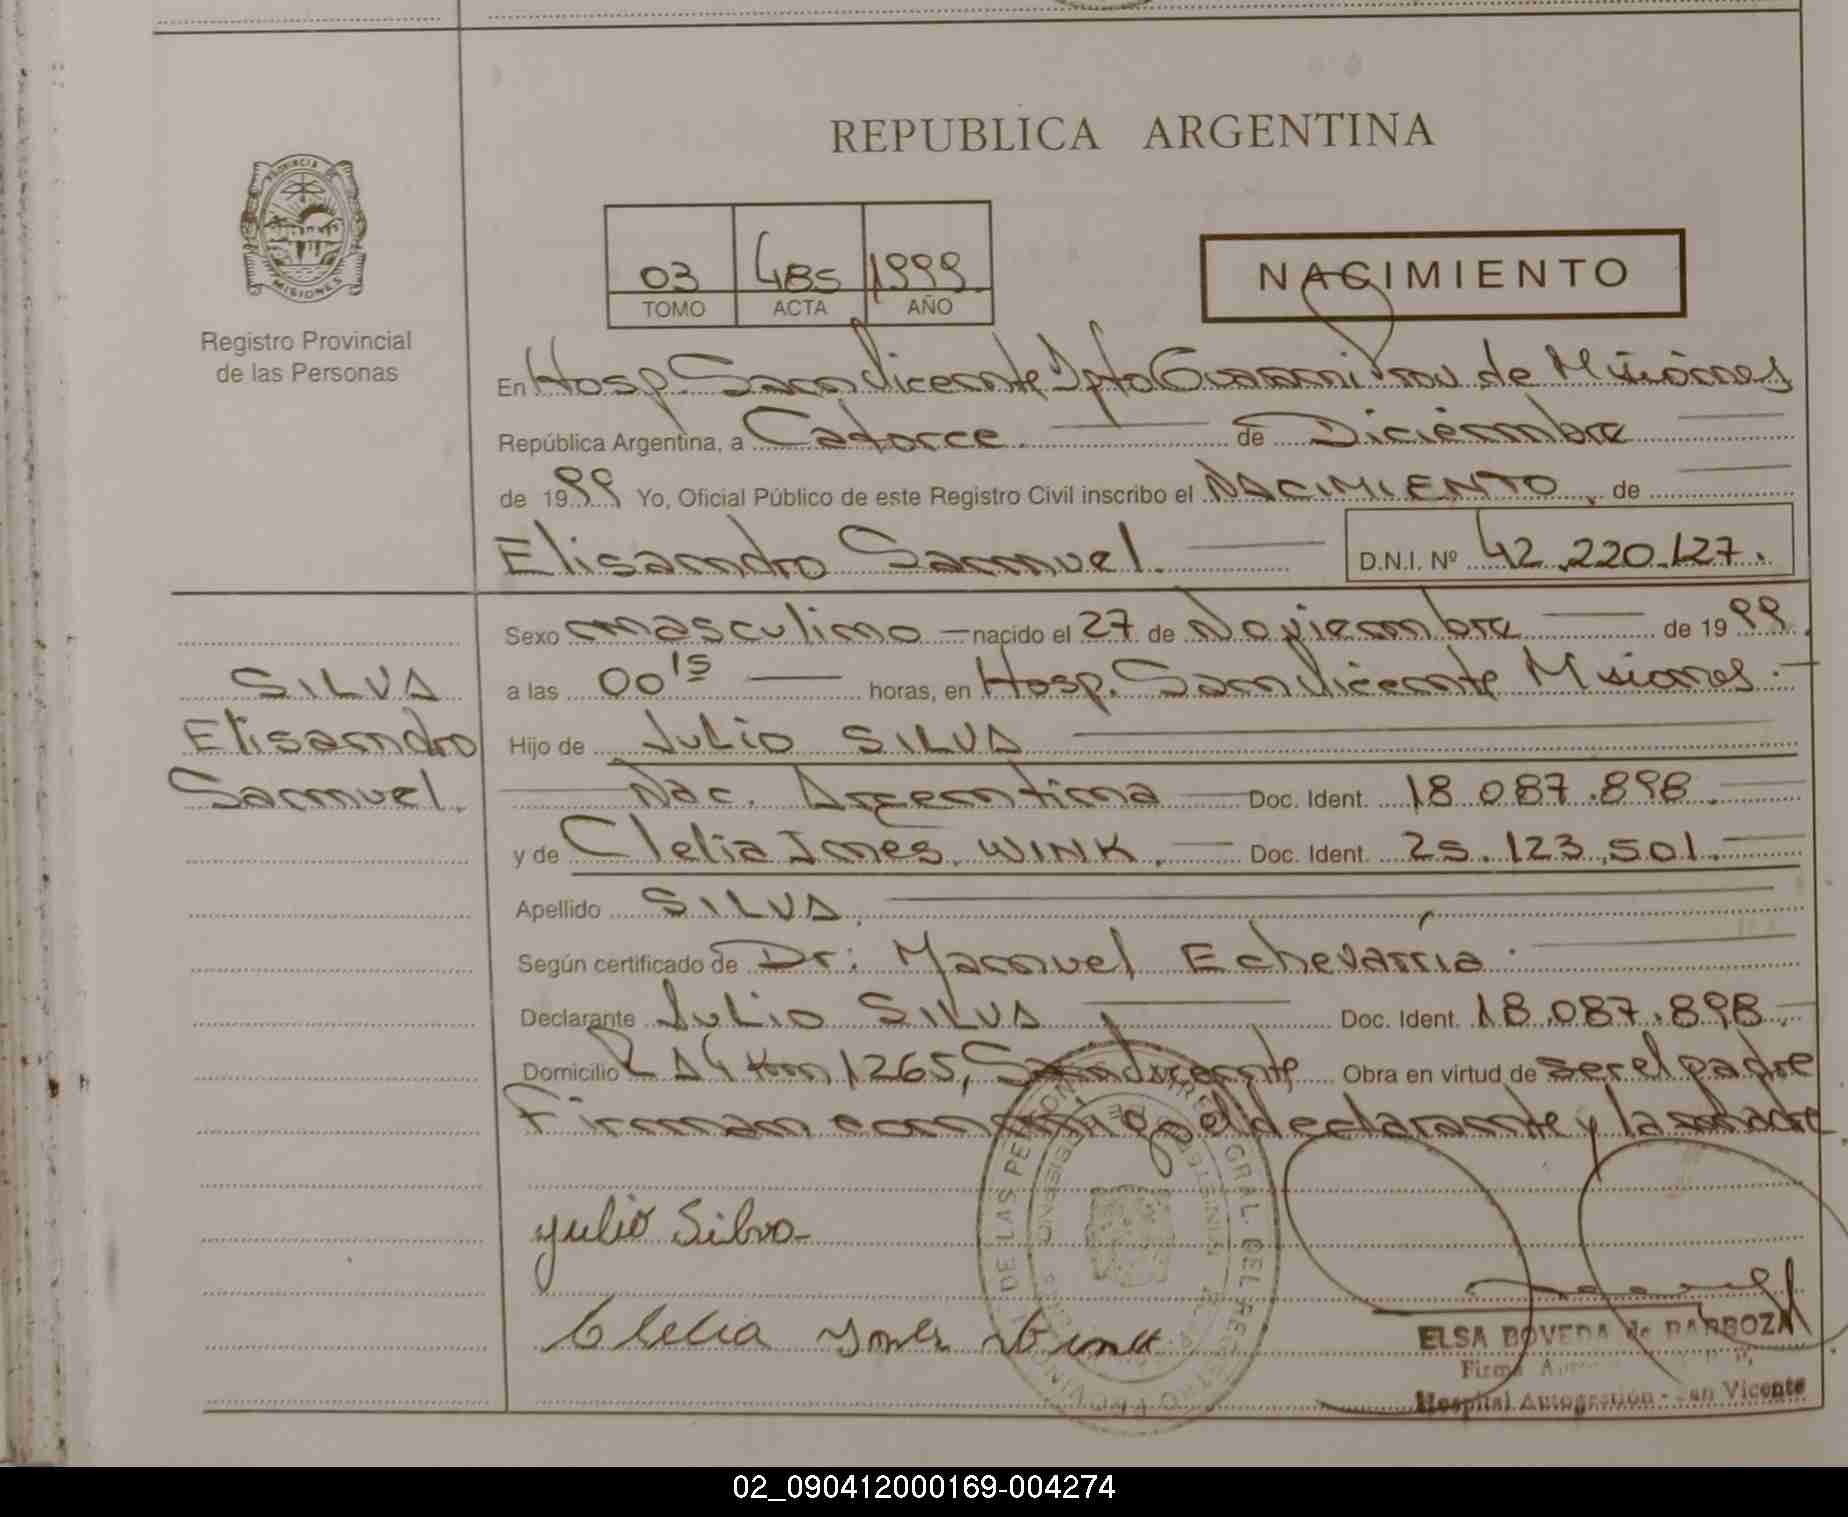 REPUBLICA ARGENTINA
PROVINCIA DE
MISIONES
Registro Provincial
de las Personas
03 485 1999
TOMO ACTA AÑO
NACIMIENTO
En Hosp. San Vicente Dpto Guarani Prov de Misiones
República Argentina, a Catorce de Diciembre
de 1999 Yo, Oficial Público de este Registro Civil inscribo el NACIMIENTO, de
Elisandro Samuel. D.N.I. Nº 42.220.127.
Sexo masculino nacido el 27 de Noviembre de 1999.
a las 00 15 horas, en Hosp. San Vicente Misiones.
Hijo de Julio SILVA
Nac. Argentina Doc. Ident. 18.087.898.
y de Clelia Ines WINK. Doc. Ident. 25.123.501.
Apellido SILVA
Según certificado de Dr: Manuel Echevarría.
Declarante Julio SILVA Doc. Ident. 18.087.898.
Domicilio Km 1265, San Vicente Obra en virtud de ser el padre
Firman conmigo el declarante y la madre.
SILVA
Elisandro
Samuel.
Julio Silva
Clelia Ines Wink
ELSA BOVEDA de BARBOZA
Hospital Autogestión - San Vicente
02_090412000169-004274